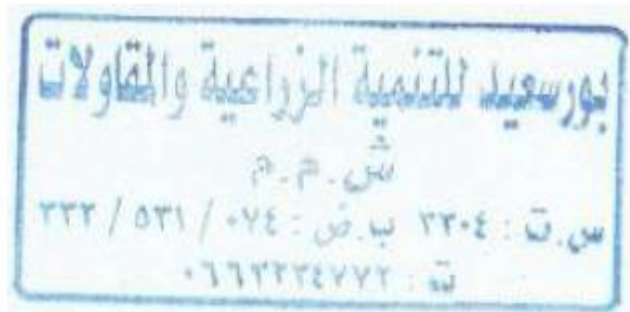 بورسعيد للتنمية الزراعية والمقاولات
ش.م.م
س.ت : ٣٣٠٤ ب.ض : ٠٧٤ / ٥٣١ / ٣٣٣
ت : ٠٦٦٣٢٢٤٧٧٢